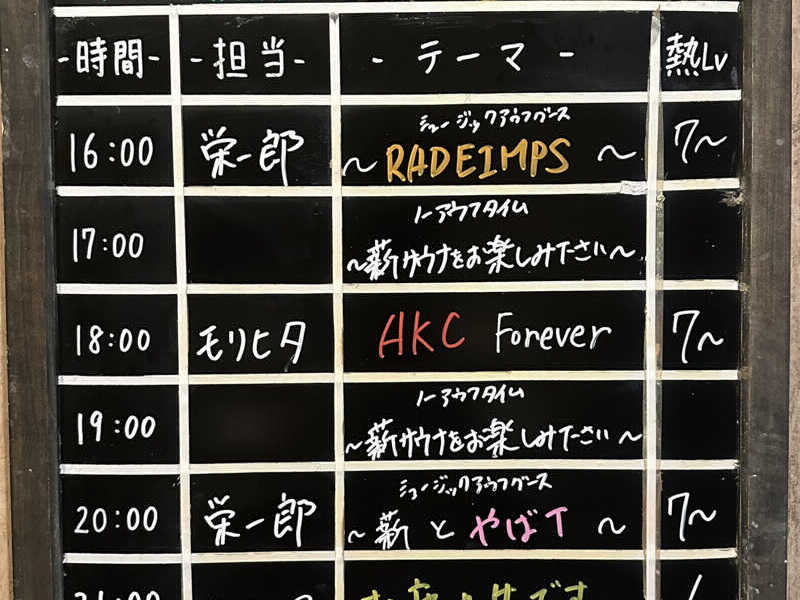 -時間- -担当- - テーマ - 熱Lv
ミュージックアウフグース
16:00 栄一郎 ～ RADEIMPS ～ 7～
ノーアウフタイム
17:00 ～薪サウナをお楽しみ下さい～
18:00 モリヒタ AKC Forever 7～
ノーアウフタイム
19:00 ～薪サウナをお楽しみ下さい～
ミュージックアウフグース
20:00 栄一郎 ～ 薪 と やばT ～ 7～